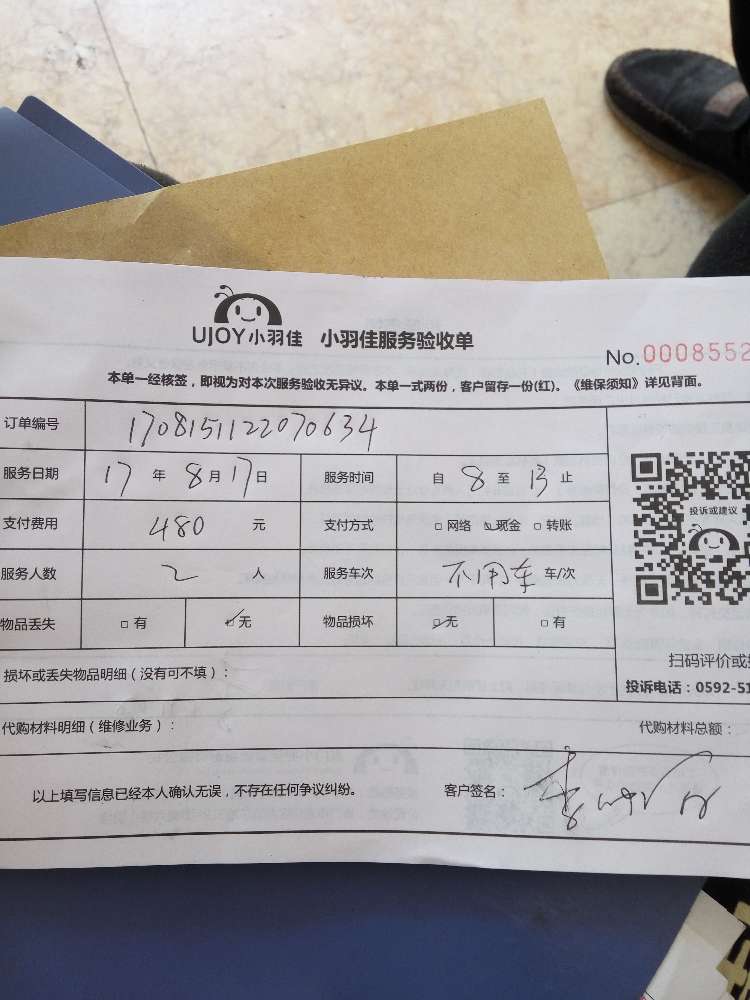 UJOY小羽佳 小羽佳服务验收单
No.0008552
本单一经核签，即视为对本次服务验收无异议。本单一式两份，客户留存一份(红)。《维保须知》详见背面。
订单编号 1708151122070634
服务日期 17 年 8 月 17 日 服务时间 自 8 至 13 止
支付费用 480 元 支付方式 □网络 □现金 □转账
投诉或建议
服务人数 2 人 服务车次 不用车 车/次
物品丢失 □有 □无 物品损坏 □无 □有
扫码评价或
损坏或丢失物品明细（没有可不填）：
投诉电话：0592-51
代购材料明细（维修业务）： 代购材料总额：
以上填写信息已经本人确认无误，不存在任何争议纠纷。 客户签名：